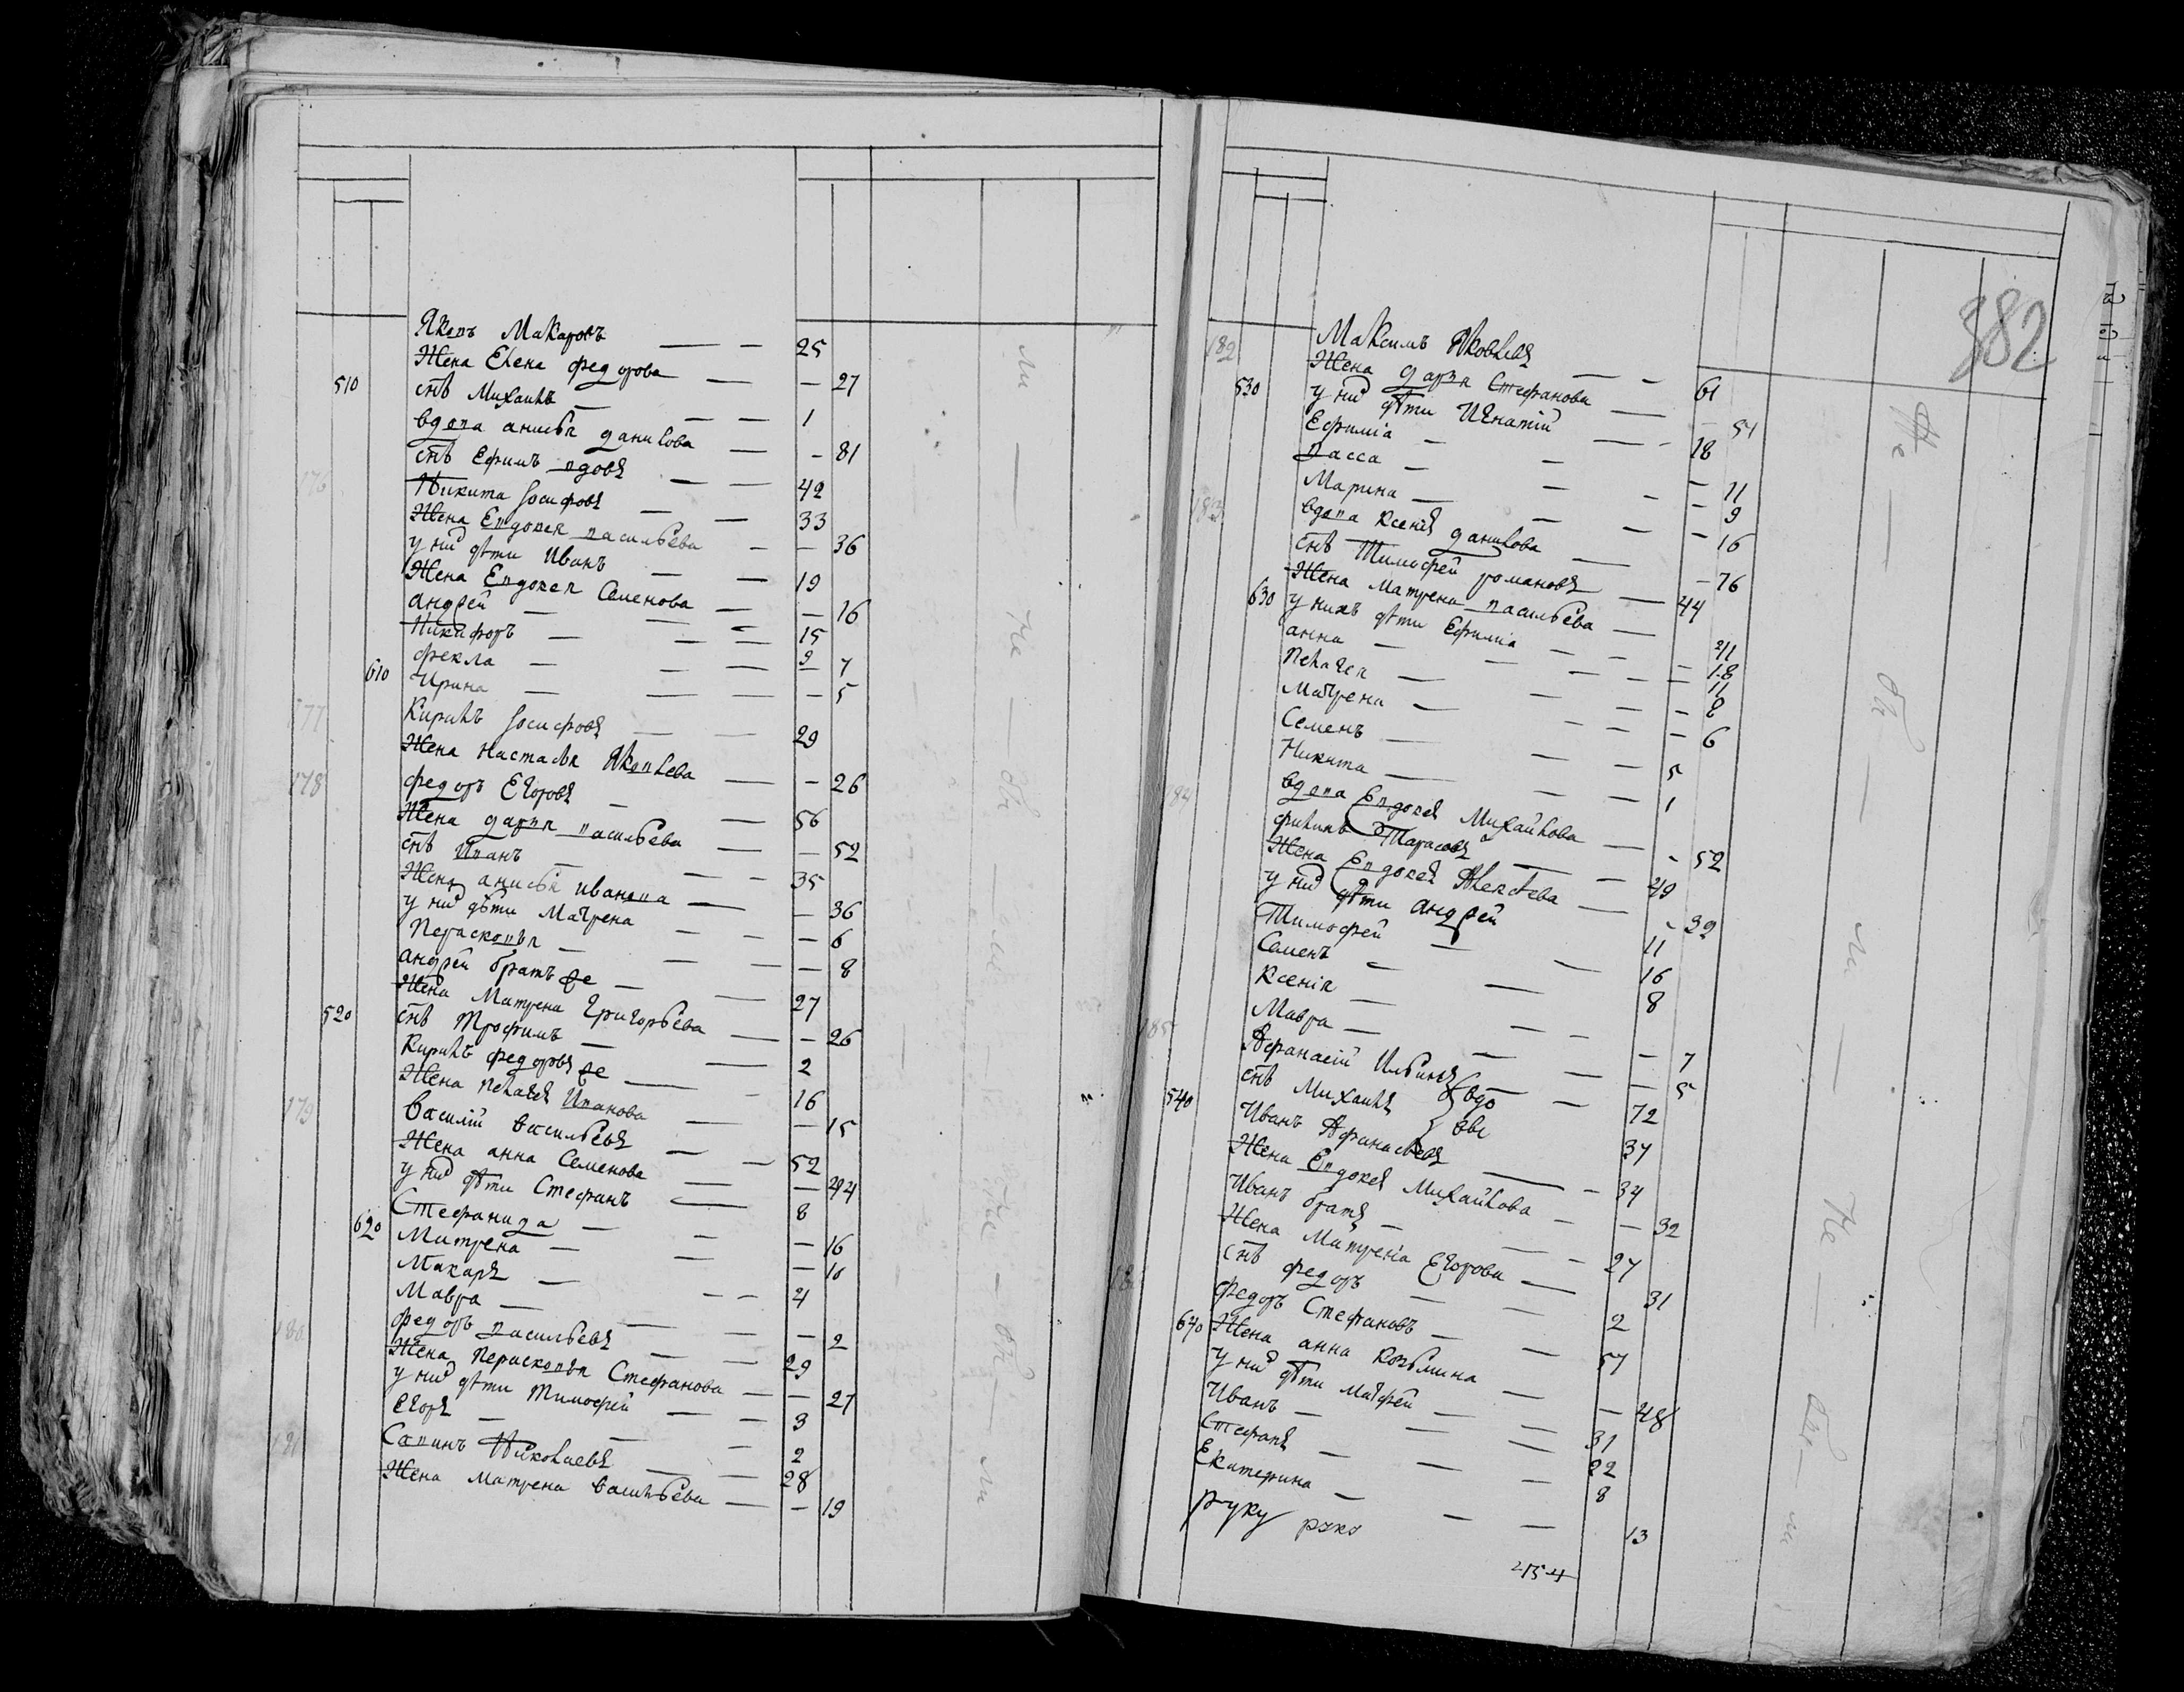 Якопъ Макаровъ — — 25
Жена Елена федорова — — 27
510 снъ Михаилъ — — 1
вдопа анисья данилова — — 81
снъ Ефимъ пдовъ — — 42
176 Никита Iосифовъ — — 33
Жена Епдокея пасильева — — 36
у них дѣти Иванъ — — 19
Жена Епдокея Семенова — — 16
андрей — — 15
Никифоръ — — 9
фекла — — 7
610 Ирина — — 5
177 Кирилъ Iосифовъ — — 29
Жена Настасья Якоплева — — 26
178 федоръ Егоровъ — — 56
Жена дарья пасильева — — 52
снъ Ипанъ — — 35
Жена анисья иванопа — — 36
у них дѣти Матрена — — 6
Перасковья — — 8
андрей братъ же — — 27
Жена Матрена Григорьева — — 26
520 снъ Трофимъ — — 2
Кирилъ федоровъ же — — 16
Жена Пелагея Ипанова — — 15
179 Василiй васильевъ — — 52
Жена анна Семенова — — 44
у них дѣти Стефанъ — — 8
Стефанида — — 16
620 Матрена — — 10
Макаръ — — 4
Мавра — — 2
180 федоръ пасильевъ — — 29
Жена Перасковья Стефанова — — 27
у них дѣти Тимофей — — 3
Егоръ — — 2
181 Сапинъ Николаевъ — — 28
Жена Матрена васильева — — 19
382
182 Максимъ Яковлевъ — — 61
Жена дарья Стефанова — — 54
530 у них дѣти Игнатiй — — 18
Ефимiа — — 11
пасса — — 9
Марина — — 16
183 вдопа Ксенiя данилова — — 76
снъ Тимофей романовъ — — 44
Жена Матрена пасильева — — 41
630 у нихъ дѣти Ефимiа — — 18
анна — — 11
Пелагея — — 8
Матрена — — 6
Семенъ — — 5
Никита — — 1
184 вдопа Епдокея Михайлова — — 52
филипъ Тарасовъ — — 49
Жена Епдокея Алексѣева — — 39
у них дѣти андрей — 11
Тимофей — — 16
Семенъ — — 8
Ксенiя — — 7
Мавра — — 5
185 Афанасiй Ильинъ вдо — 72
снъ Михаилъ — 37
540 Иванъ Афанасьевъ — — 34
Жена Епдокея Михайлова — — 32
Иванъ братъ — — 27
Жена Матренiа Егорова — 31
снъ федоръ — — 2
федоръ Стефановъ — — 57
640 Жена анна Козьмина — — 48
у них дѣти Матфей — — 31
Иванъ — — 22
Стефанъ — — 8
Екатерина — — 13